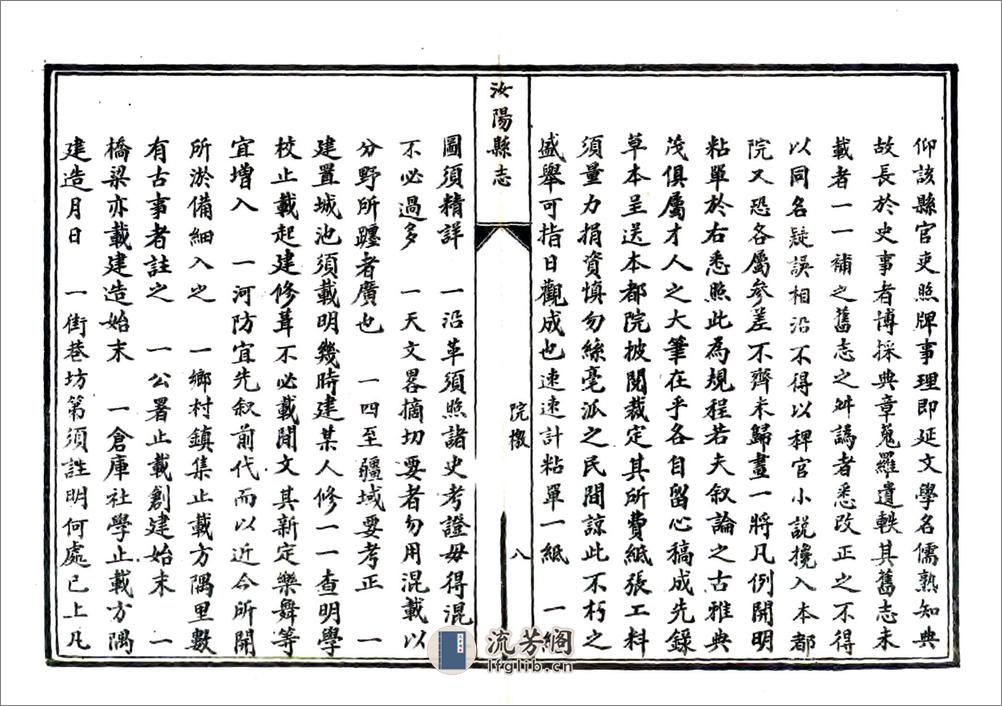 仰該縣官吏照牌事理即延文學名儒熟知典
故長於史事者博採典章蒐羅遺軼其舊志未
載者一一補之舊志之舛譌者悉改正之不得
以同名疑誤相沿不得以稗官小說攙入本都
院又恐各屬參差不齊未歸畫一將凡例開明
粘單於右悉照此為規程若夫叙論之古雅典
茂俱屬才人之大筆在乎各自留心稿成先錄
草本呈送本都院披閱裁定其所費紙張工料
須量力捐資慎勿絲毫派之民間諒此不朽之
盛舉可指日觀成也速速計粘單一紙　一輿
汝陽縣志
院檄
八
圖須精詳　一沿革須照諸史考證毋得混
不必過多　一天文畧摘切要者勿用混載以
分野所躔者廣也　一四至疆域要考正　一
建置城池須載明幾時建某人修一一查明學
校止載起建修葺不必載閒文其新定樂舞等
宜增入　一河防宜先叙前代而以近今所開
所淤備細入之　一鄉村鎮集止載方隅里數
有古事者註之　一公署止載創建始末　一
橋梁亦載建造始末　一倉庫社學止載方隅
建造月日　一街巷坊第須註明何處已上凡
流芳閣
lfglib.cn